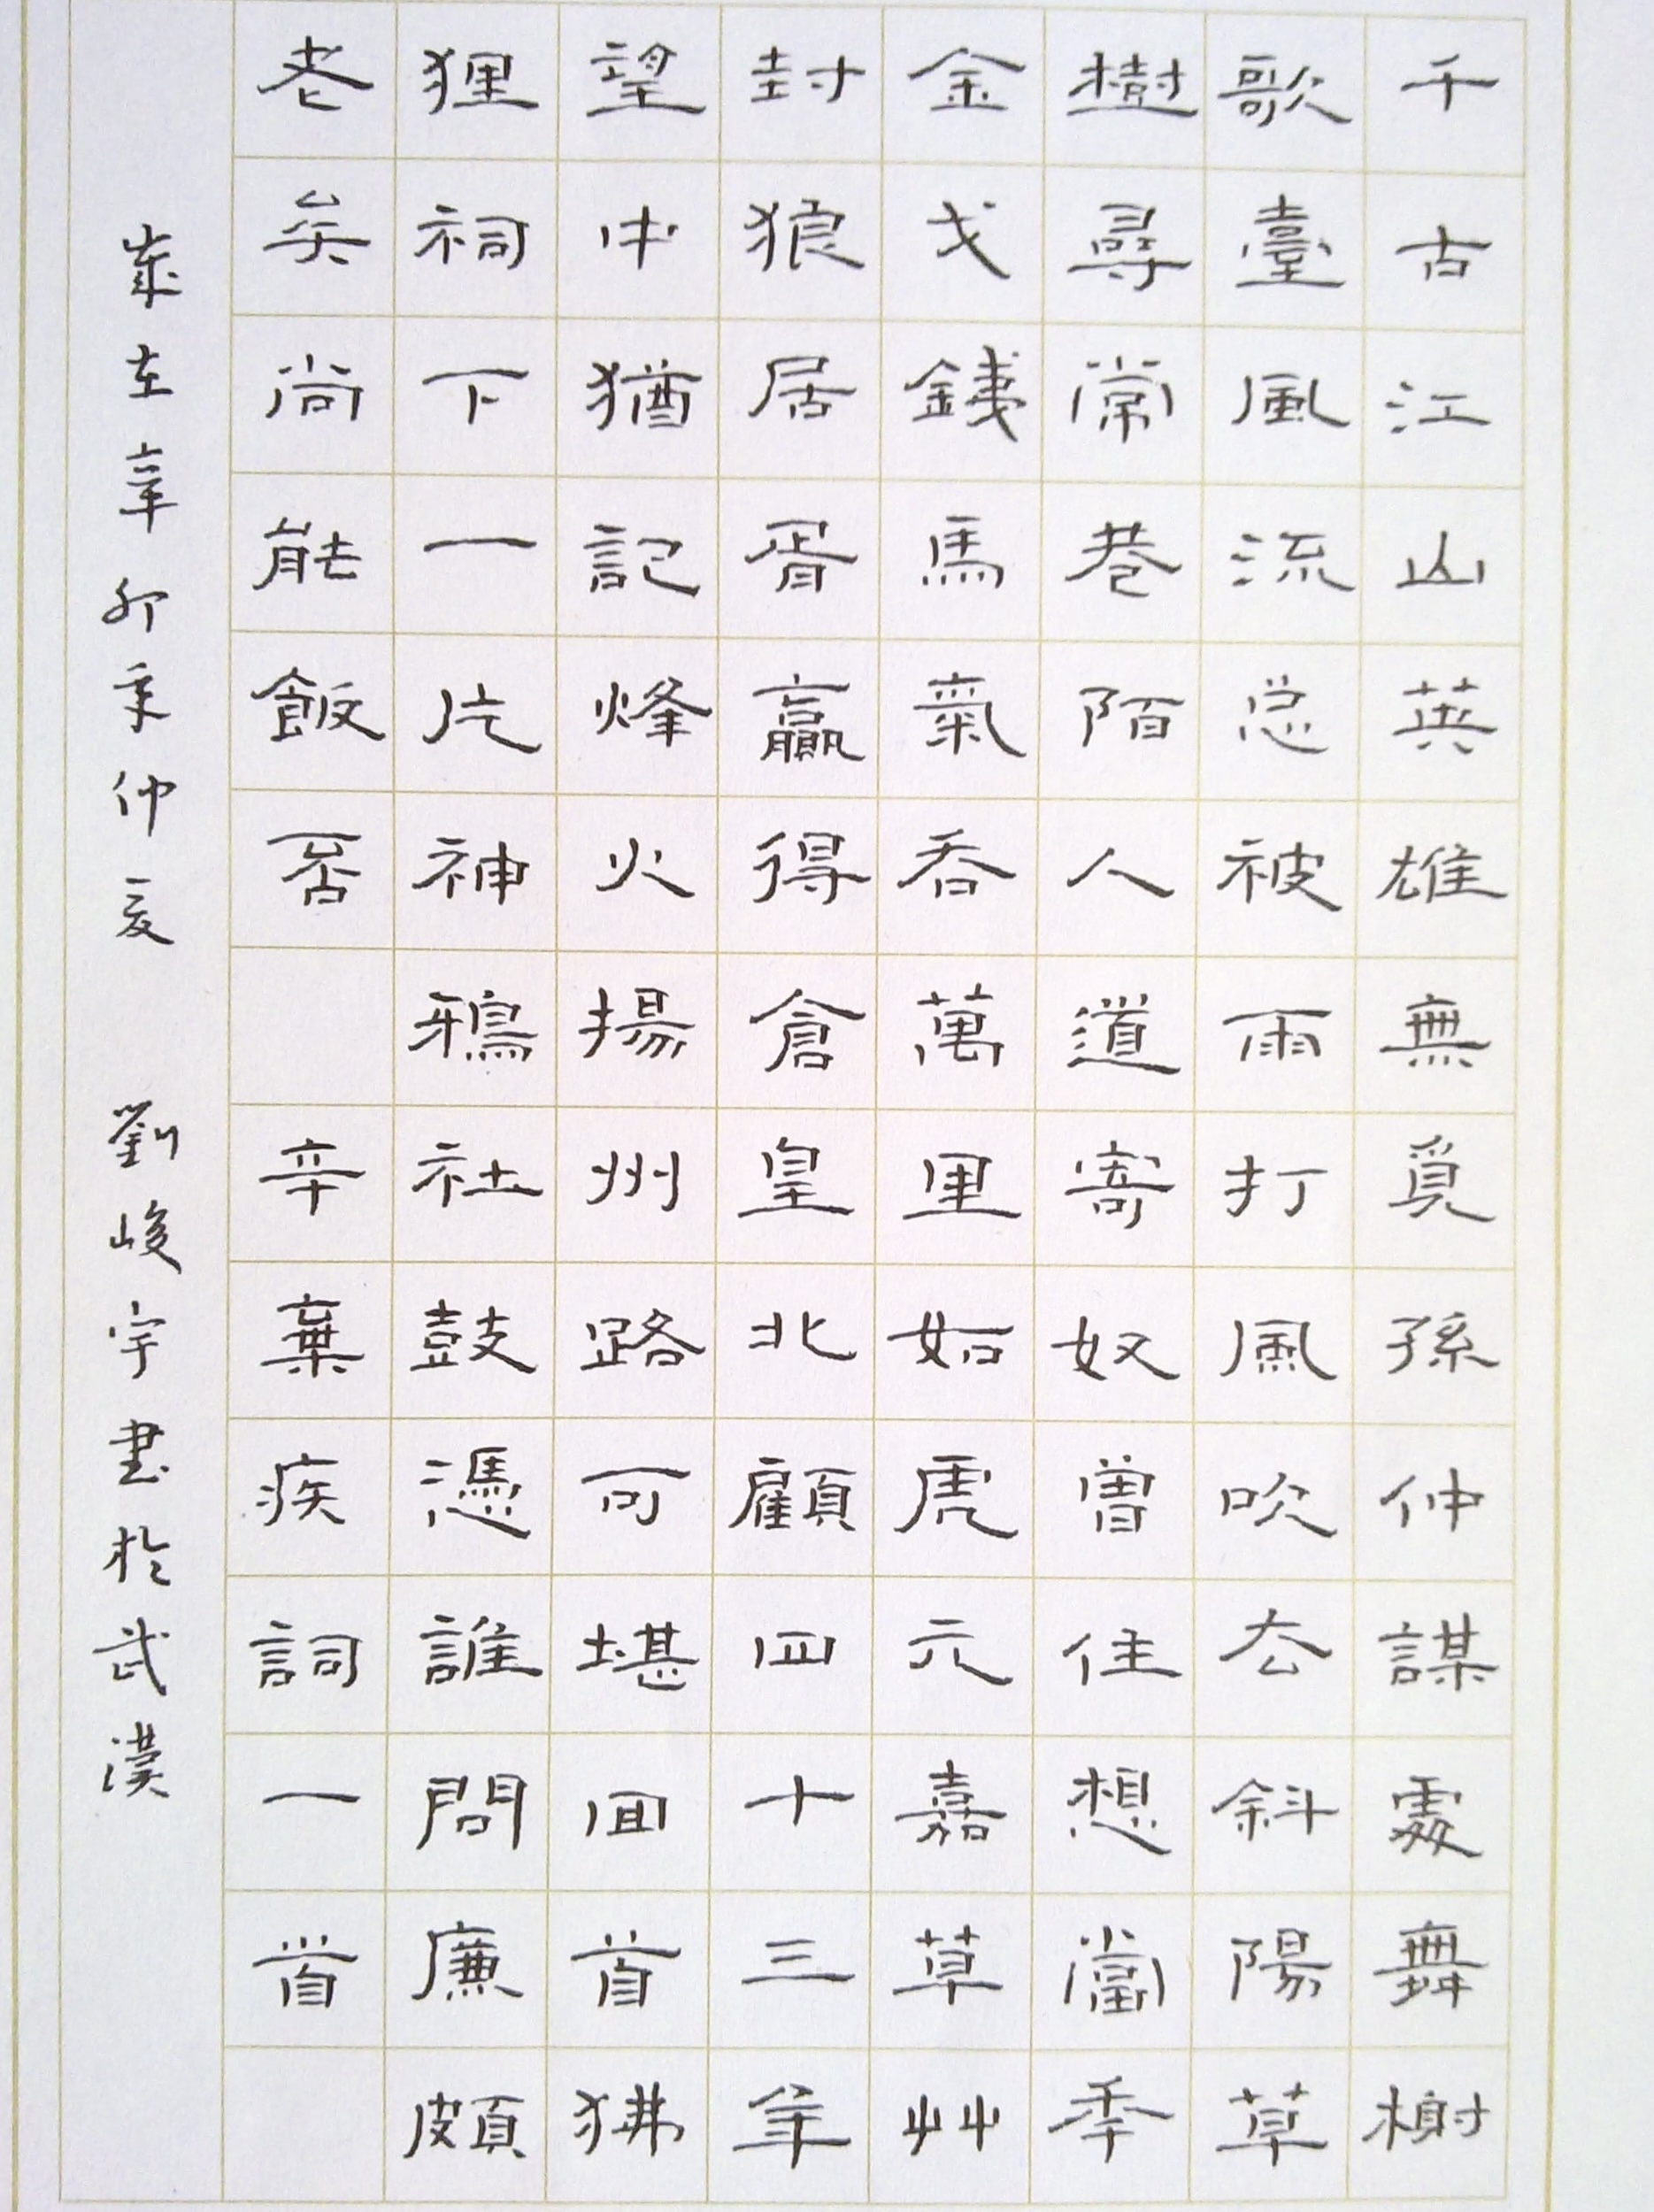 千古江山英雄無覓孫仲謀處舞榭
歌臺風流总被雨打風吹去斜陽草
樹尋常巷陌人道寄奴曾住想當年
金戈鐵馬氣吞萬里如虎元嘉草艸
封狼居胥贏得倉皇北顧四十三年
望中猶記烽火揚州路可堪回首狒
狸祠下一片神鴉社鼓憑誰問廉頗
老矣尚能飯否 辛棄疾詞一首
歲在辛卯年仲夏 劉峻宇書於武漢